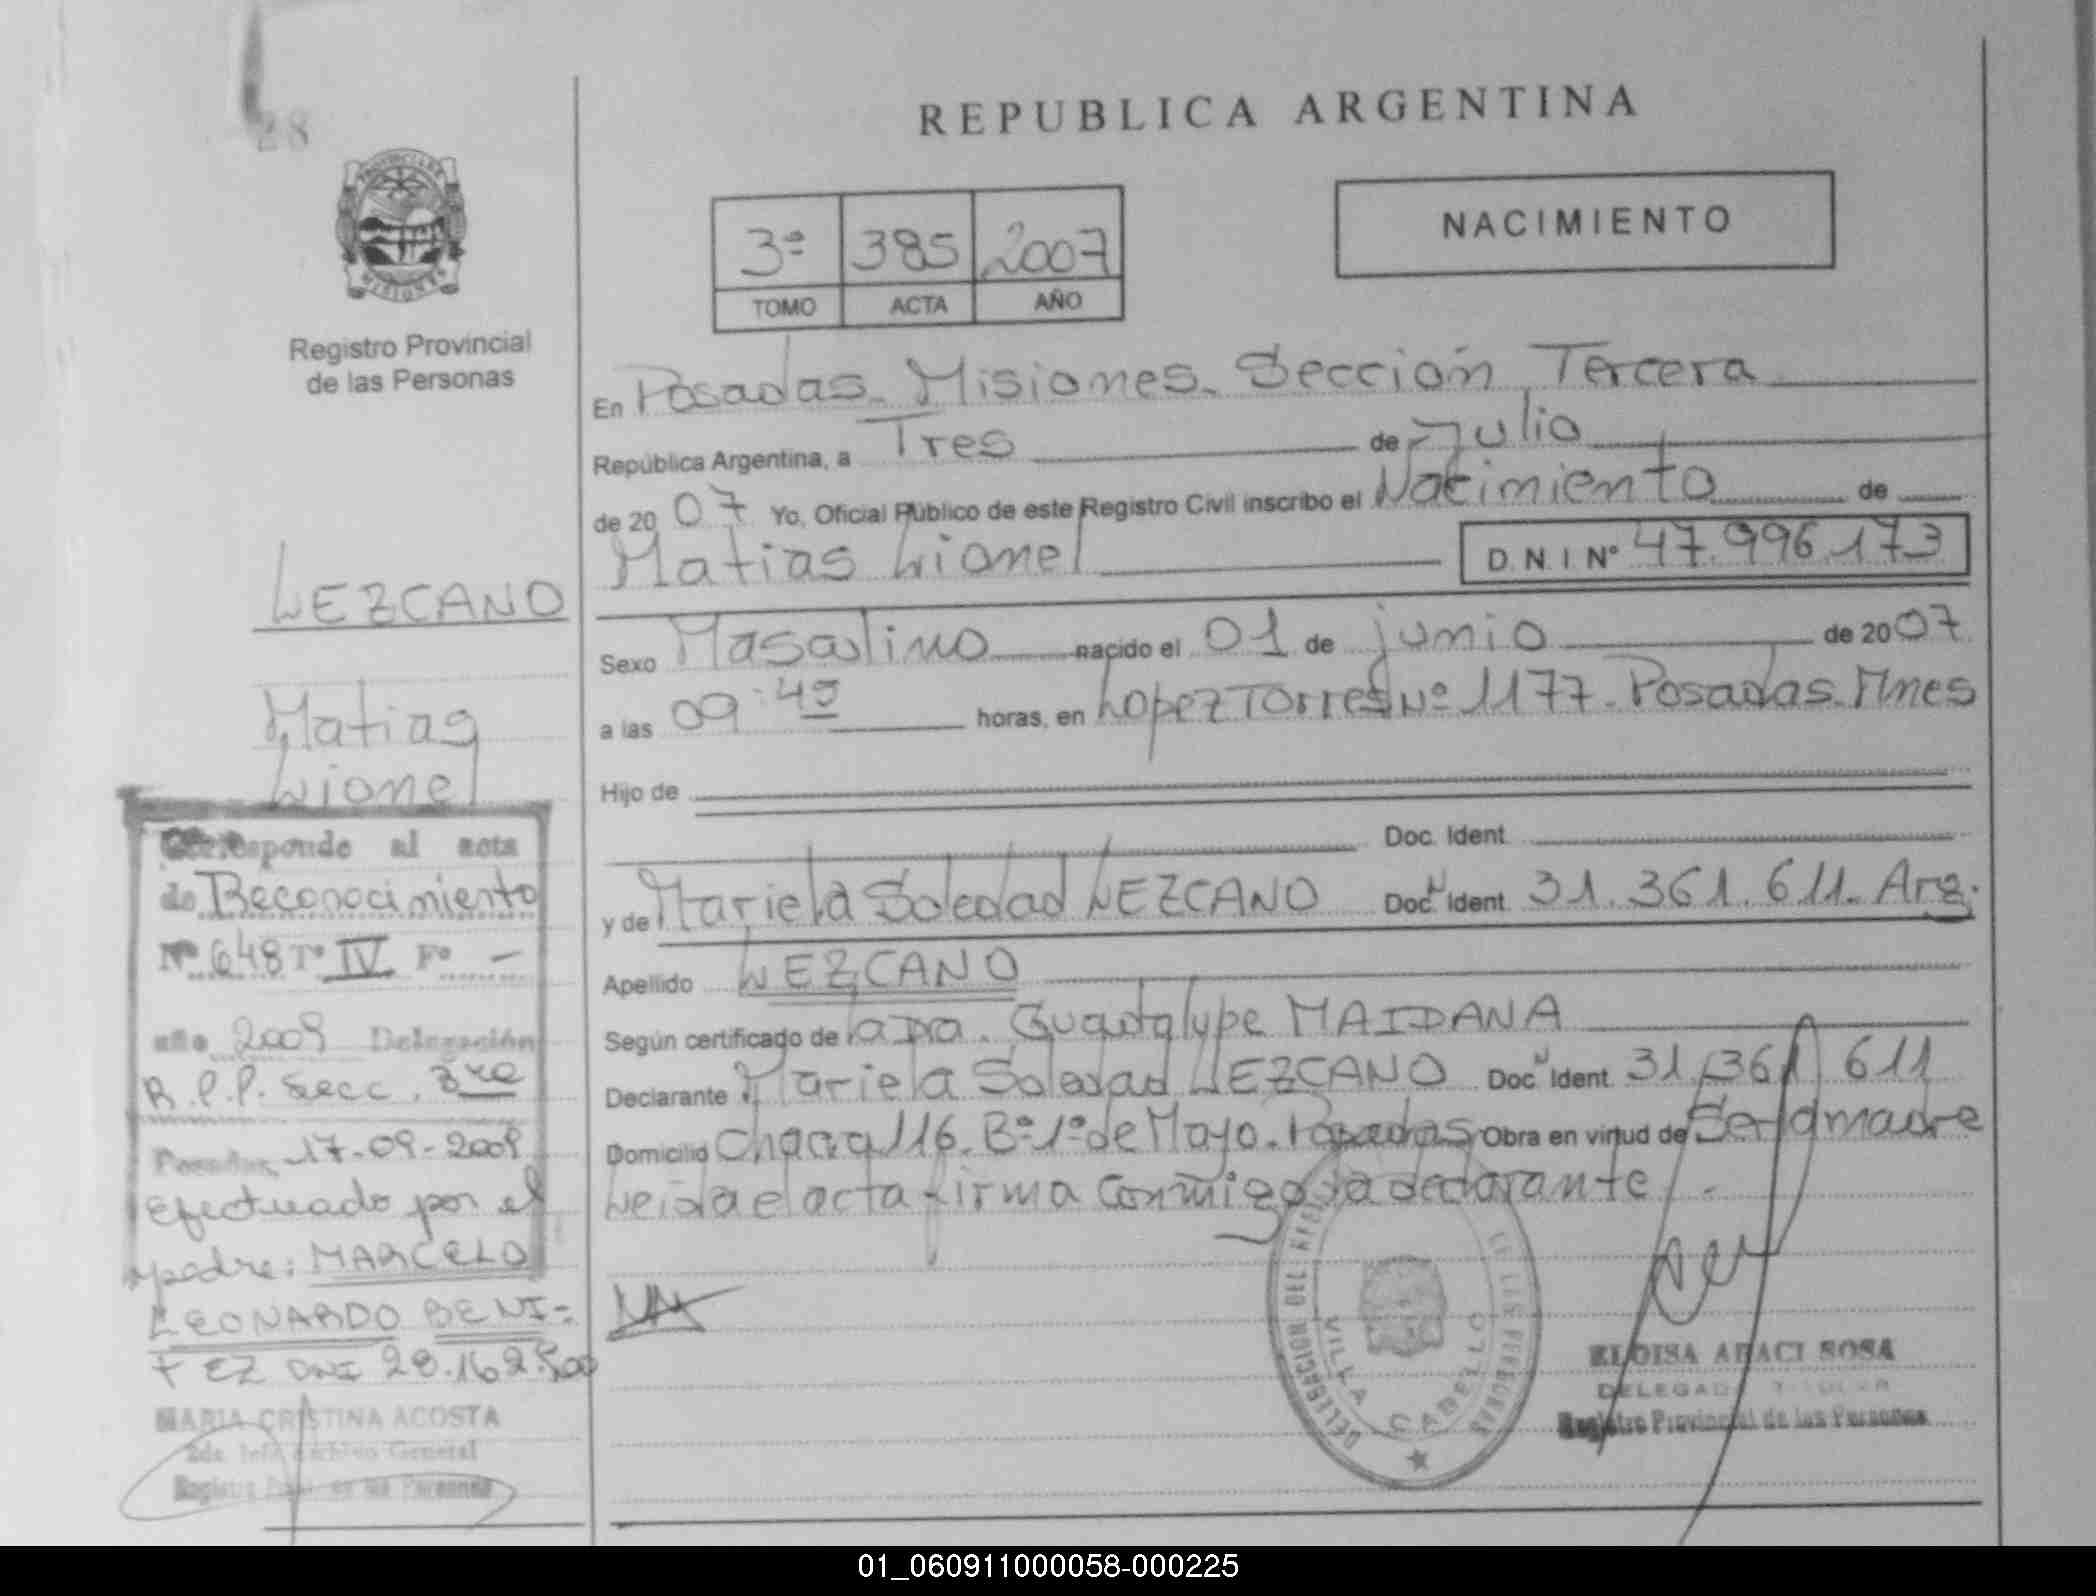 28
REPUBLICA ARGENTINA
NACIMIENTO
3ª 385 2007
TOMO ACTA AÑO
Registro Provincial
de las Personas
En Posadas. Misiones. Sección Tercera
República Argentina, a Tres de Julio
de 2007 Yo, Oficial Público de este Registro Civil inscribo el Nacimiento de
Matias Lionel D.N.I Nº 47.996.173
LEZCANO
Matias
Lionel
Sexo Masculino nacido el 01 de junio de 2007
a las 09:45 horas, en Lopez Torres Nº 1177. Posadas. Mnes
Hijo de
Doc. Ident.
y de Mariela Soledad LEZCANO Doc. Ident. 31.361.611. Arg.
Apellido LEZCANO
Según certificado de la Dra. Guadalupe MAIDANA
Declarante Mariela Soledad LEZCANO Doc. Ident. 31.361.611
Domicilio Chacra 116. Bº 1º de Mayo. Posadas Obra en virtud de Ser la madre
Leida el acta firma conmigo la declarante.
Corresponde al acta
de Reconocimiento
Nº 648 Tº IV Fº -
año 2009 Delegación
R.P.P. Secc. 3ra
Posadas, 17-09-2009
Efectuado por el
padre: MARCELO
LEONARDO BENI=
TEZ DNI 28.162.500
MARIA CRISTINA ACOSTA
Archivo General
Registro de las Personas
VILLA CABELLO
ELOISA ARACI SOSA
DELEGADA TITULAR
Registro Provincial de las Personas
01_060911000058-000225